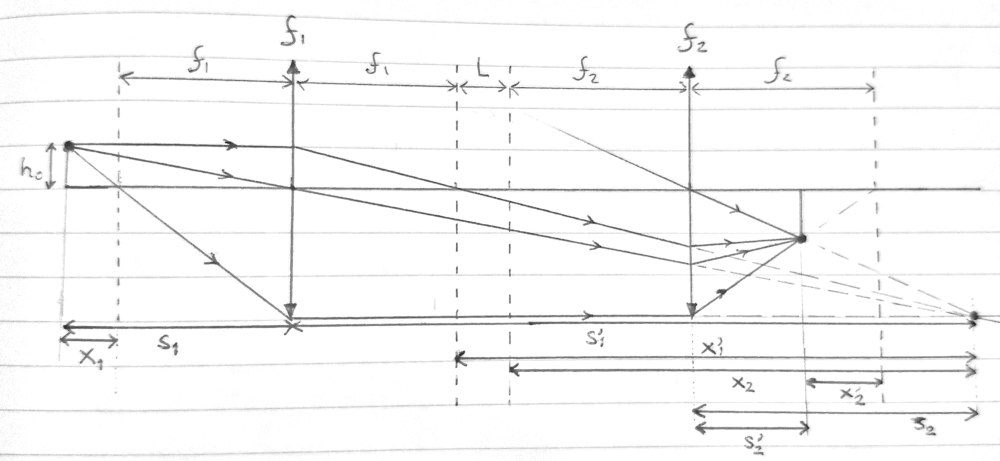 f₁ f₂
f₁ f₁ L f₂ f₂
h₀
S₁ S₁'
x₁ x₁'
x₂ x₂'
S₂
S₂'